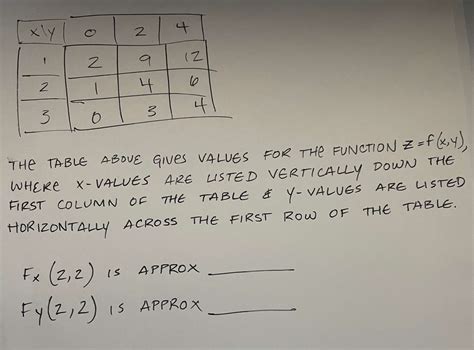 x\y 0 2 4
1 2 9 12
2 1 4 6
3 0 3 4
THE TABLE ABOVE GIVES VALUES FOR THE FUNCTION Z=f(x,y),
WHERE X-VALUES ARE LISTED VERTICALLY DOWN THE
FIRST COLUMN OF THE TABLE & Y-VALUES ARE LISTED
HORIZONTALLY ACROSS THE FIRST ROW OF THE TABLE.
Fx (2,2) IS APPROX ________
Fy (2,2) IS APPROX ________